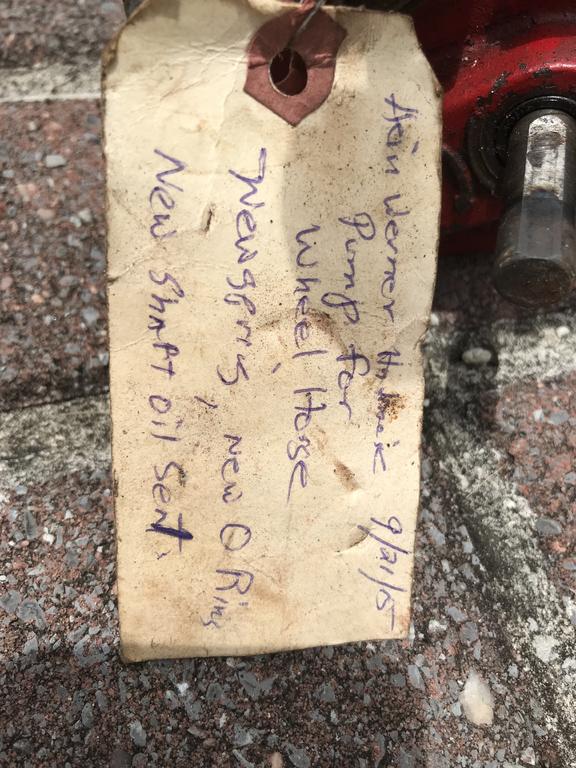 Hein Werner 9/21/15
Pump for
Wheel Horse
New spris, New O Rings
New shaft oil Sent.